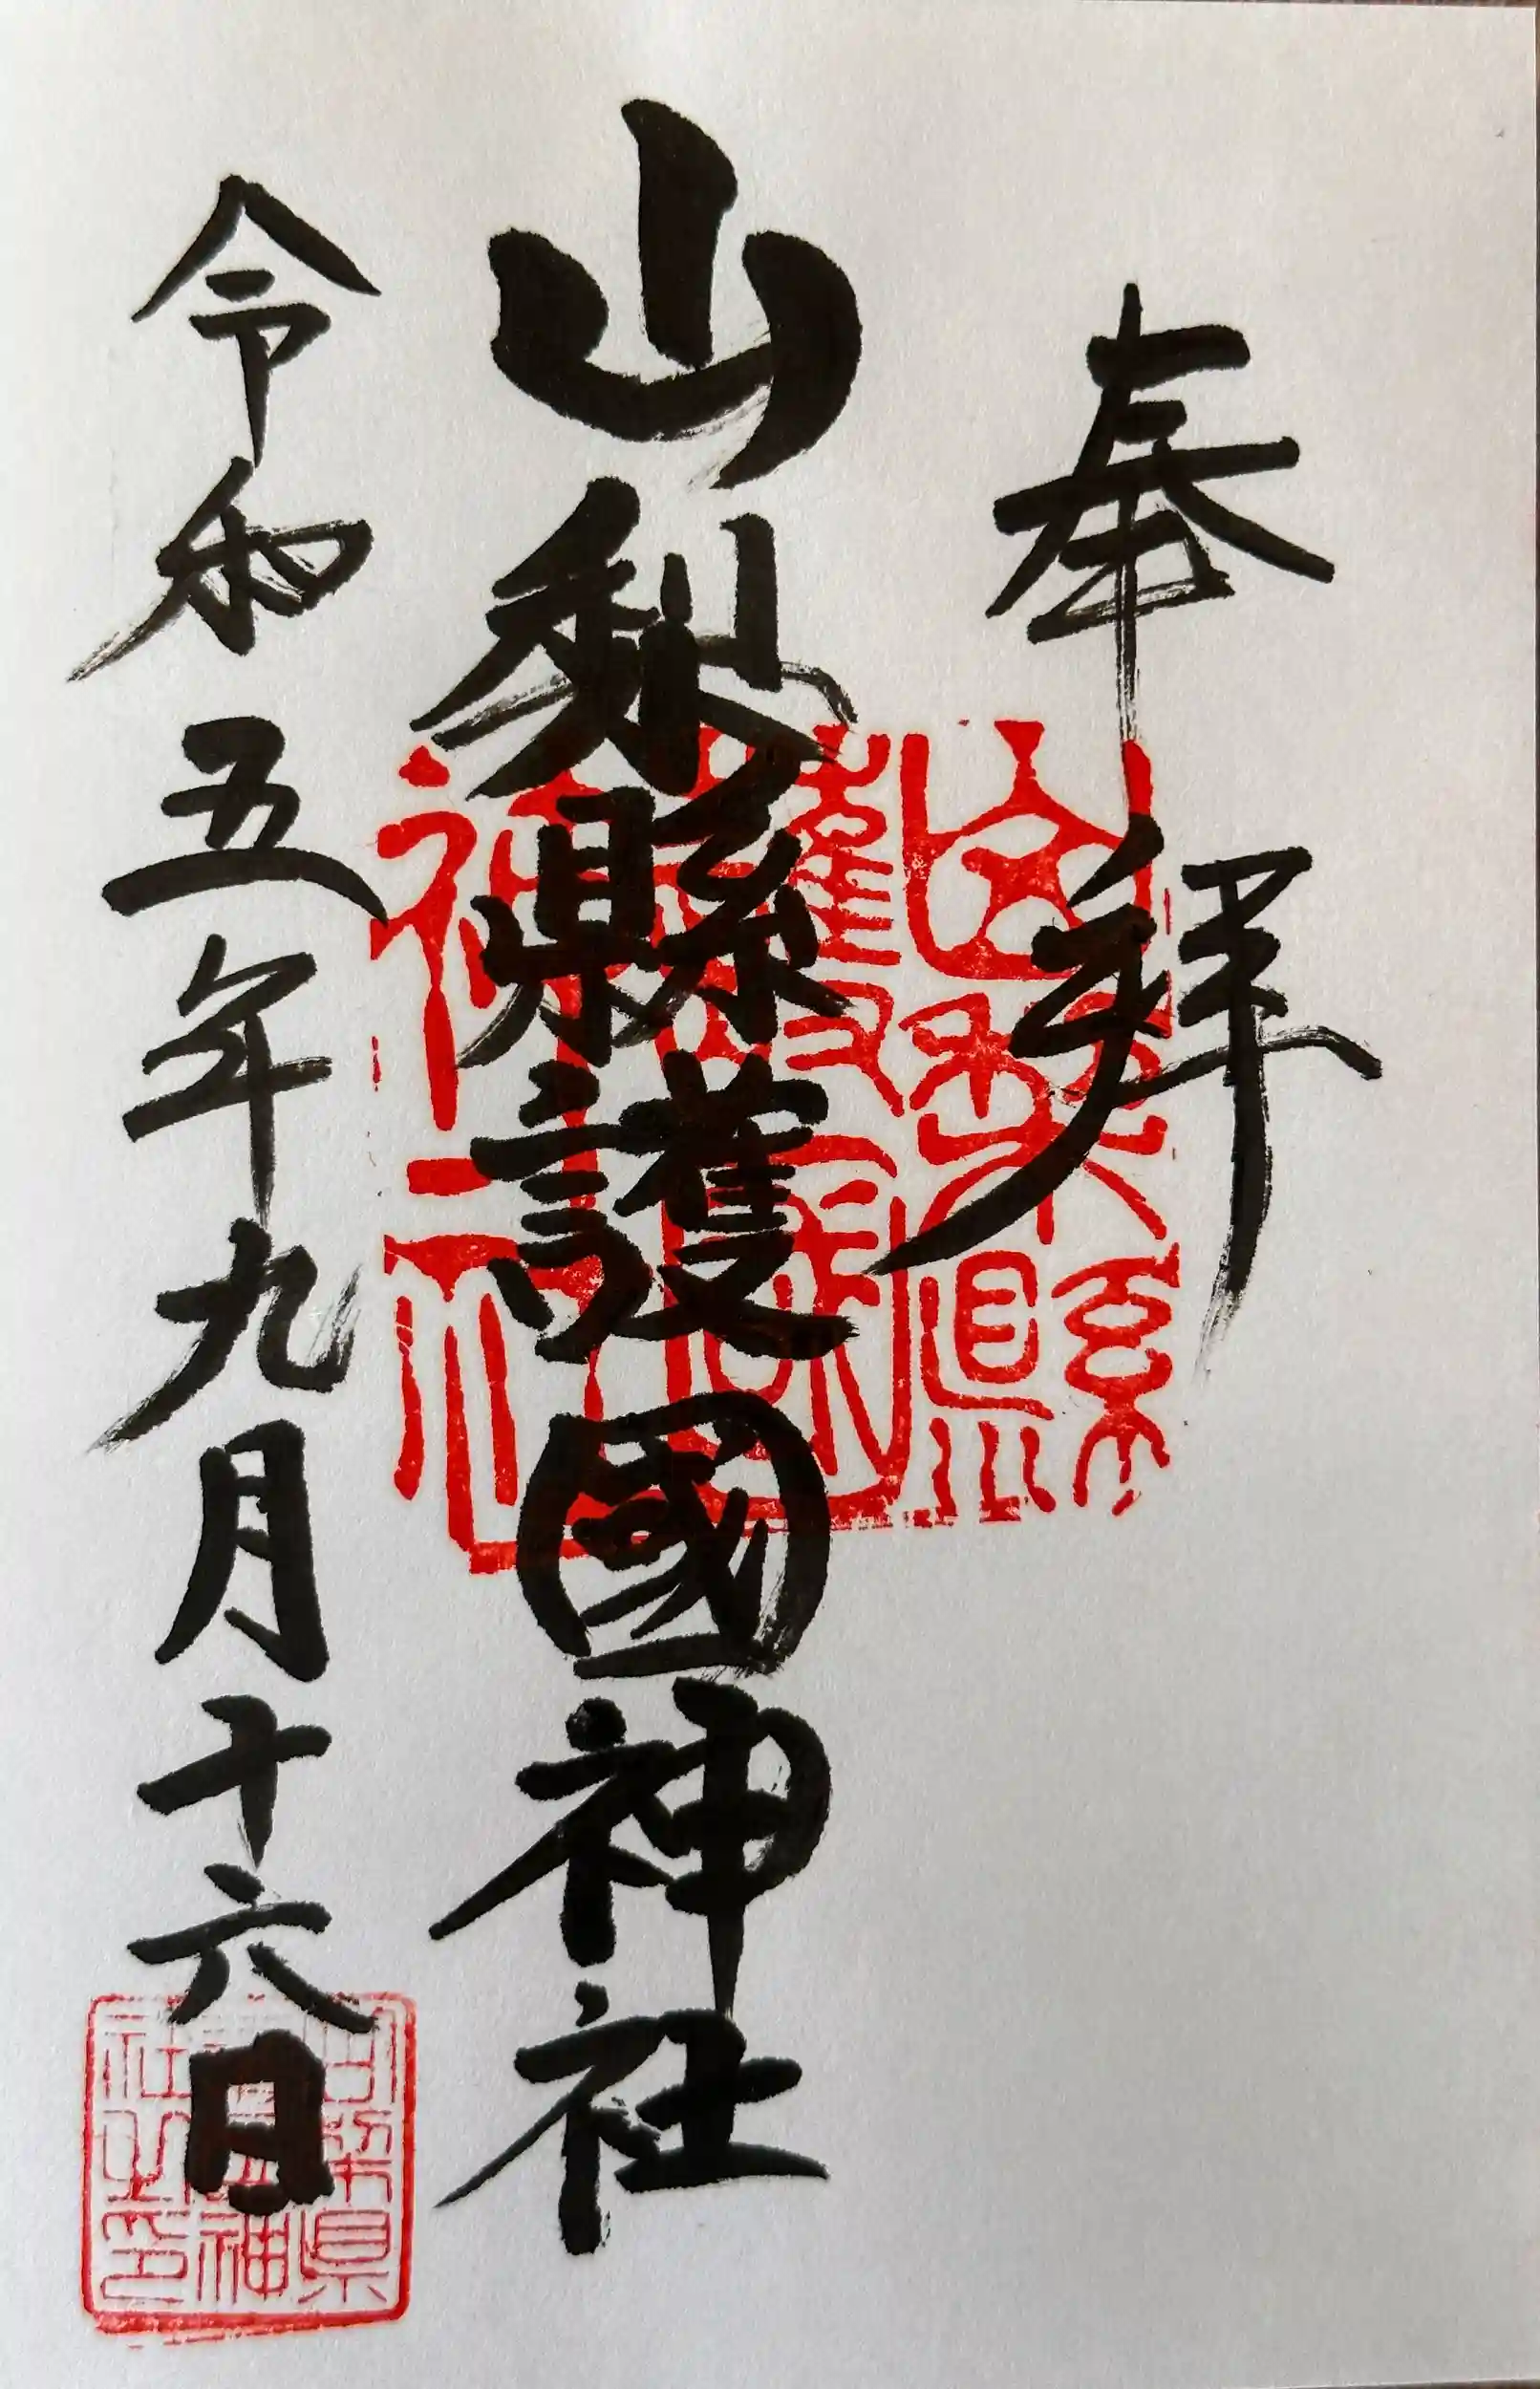 奉拝
山梨縣護國神社
令和五年九月十六日
山梨縣護國神社
山梨県護国神社之印